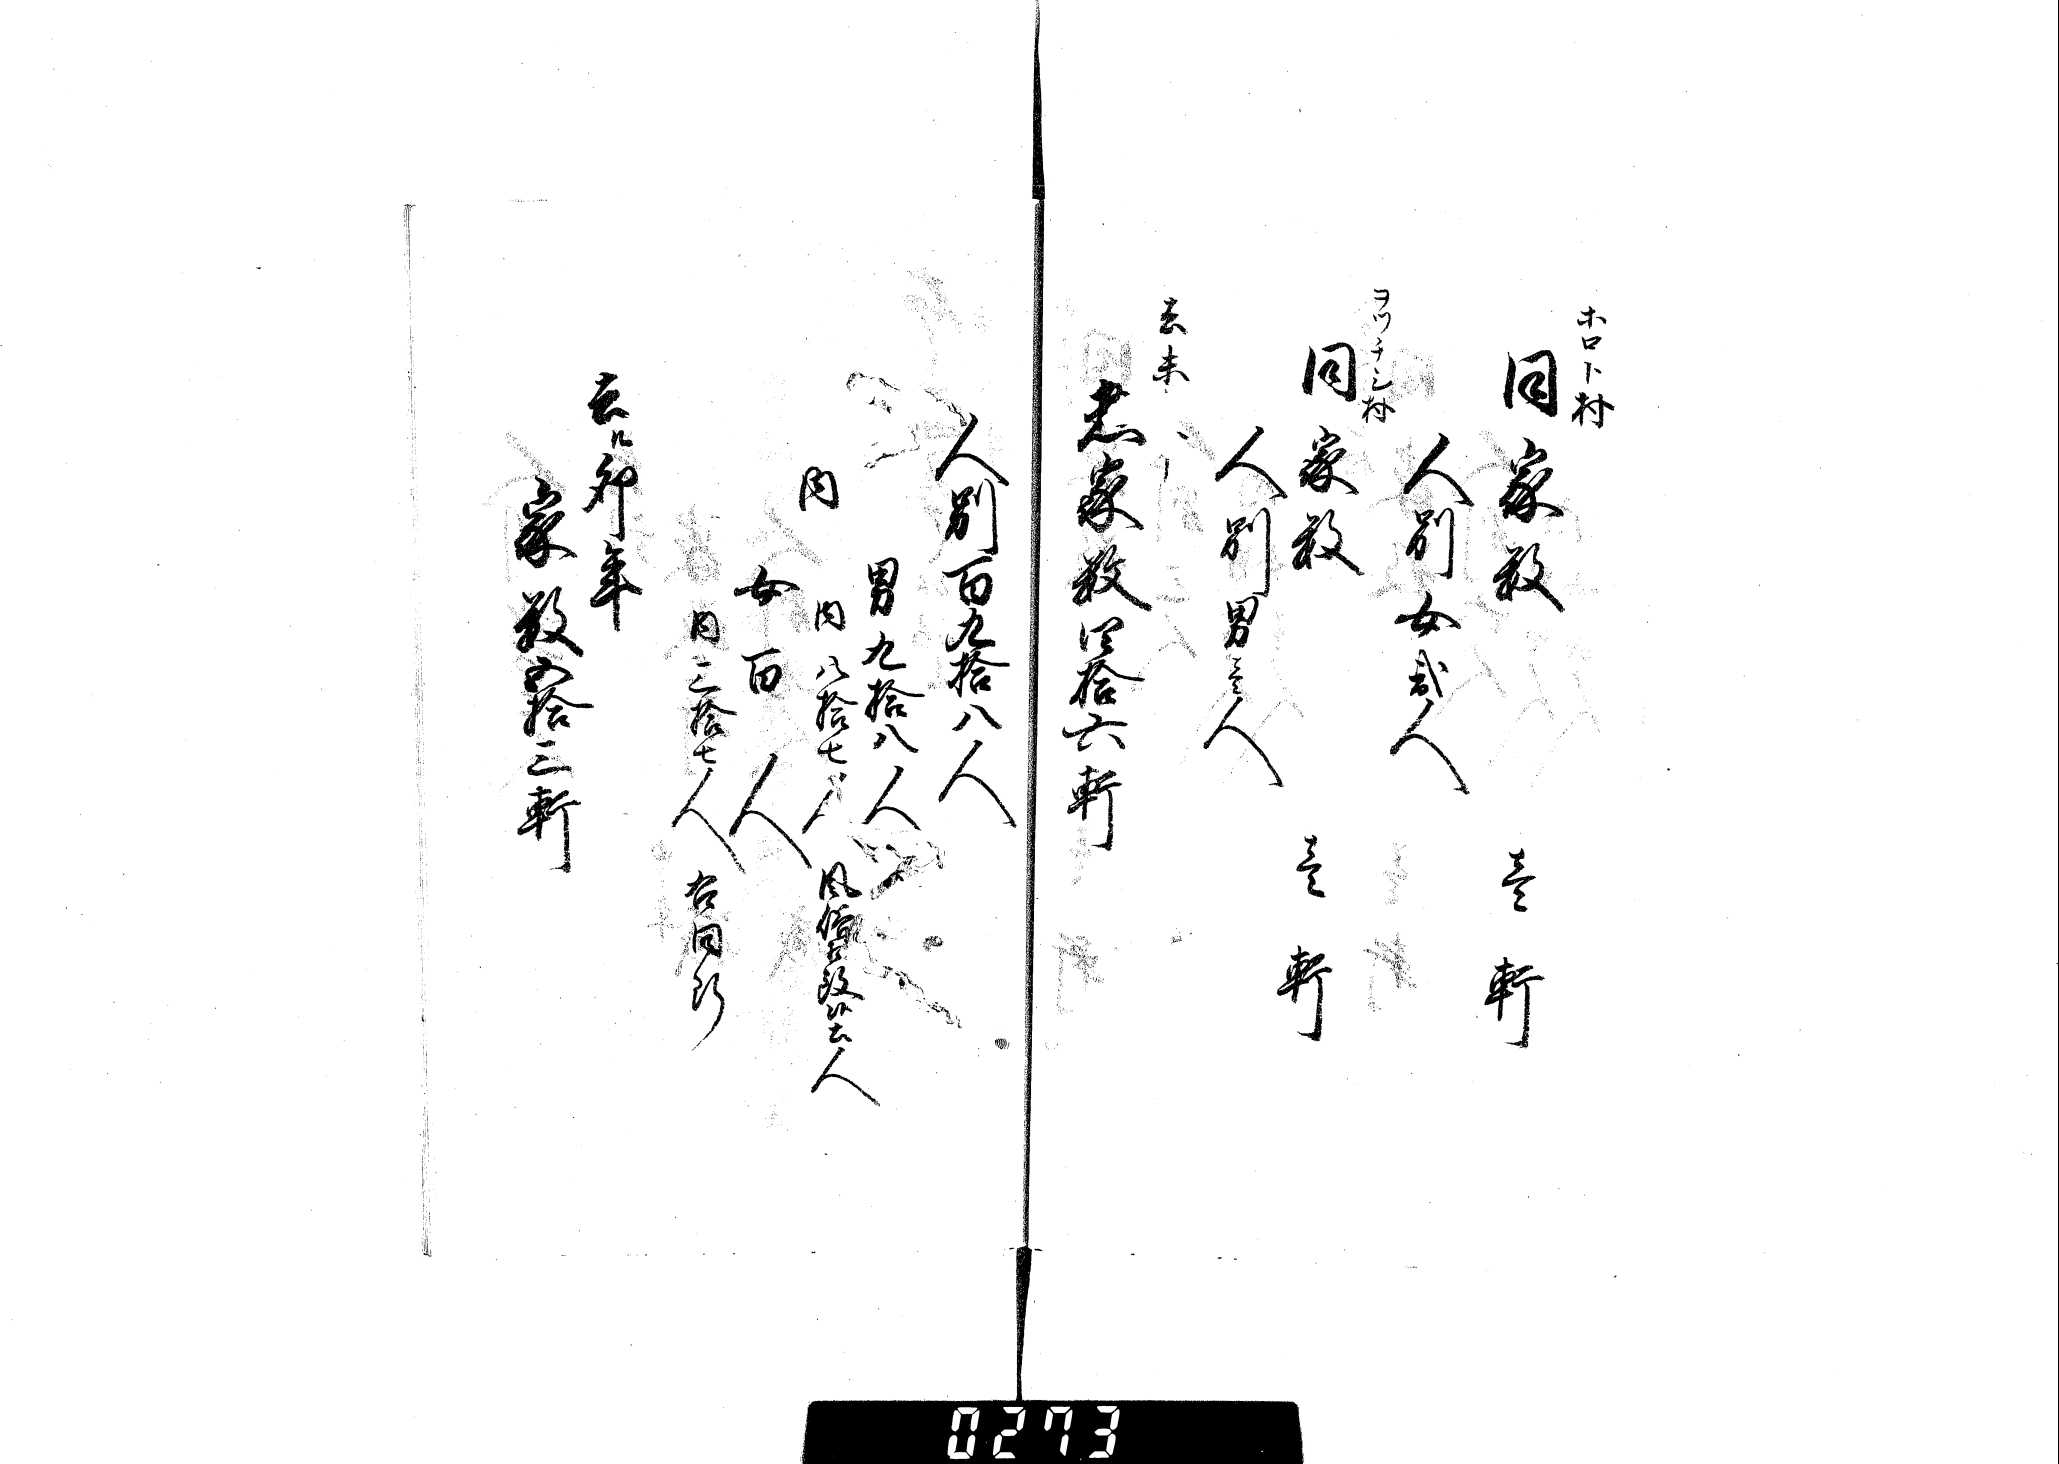 ホロト村
同家数 壱軒
人別女弐人
ヲツチシ村
同家数 壱軒
人別男壱人
去未
惣家数四拾六軒
人別百九拾八人
男九拾八人
内
内八拾七人 風俗改候土人
女百人
内三拾七人 右同断
去ル卯年
家数五拾三軒
0273